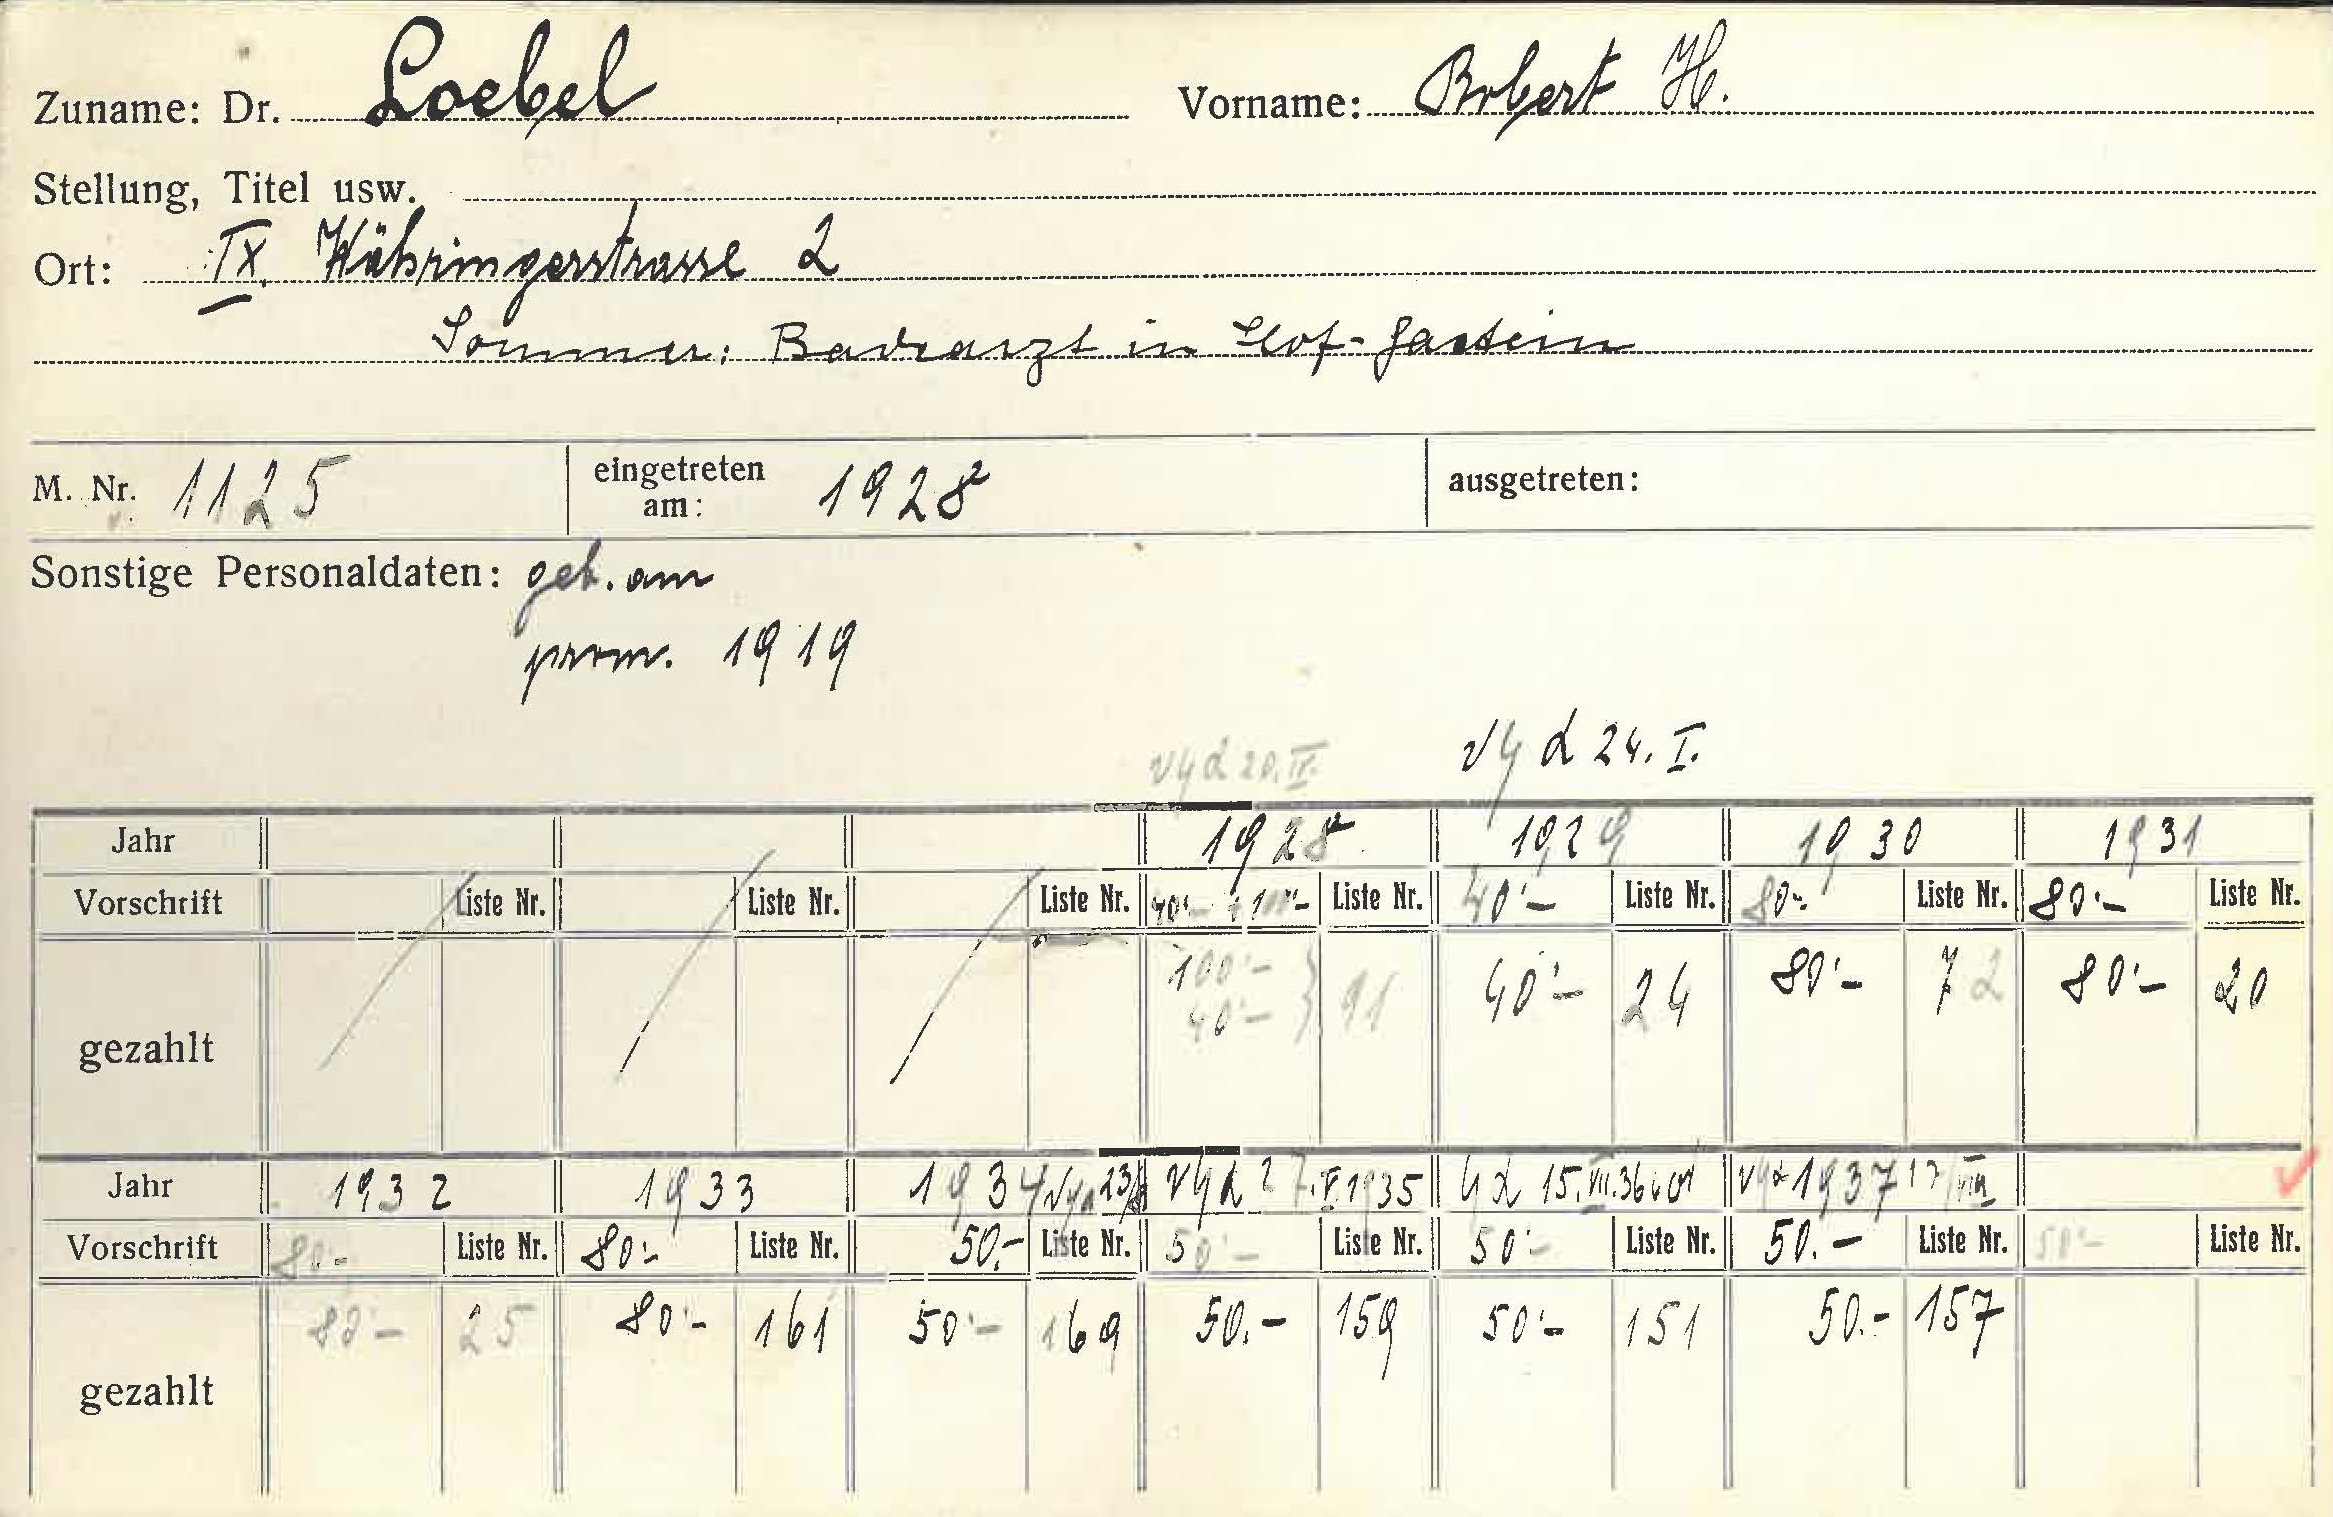 Zuname: Dr. Loebel Vorname: Robert H.
Stellung, Titel usw.
Ort: IX. Währingerstrasse 2
Sommer: Badearzt in Hof-Gastein
M. Nr. 1125 eingetreten am: 1928 ausgetreten:
Sonstige Personaldaten: geb. am
prom. 1919
24. I.
Jahr 1928 1929 1930 1931
Vorschrift Liste Nr. Liste Nr. Liste Nr. 40'- Liste Nr. 40'- Liste Nr. 80'- Liste Nr. 80'- Liste Nr.
gezahlt 100'- 91 40'- 24 80'- 72 80'- 20
40'-
Jahr 1932 1933 1934 1935 15. VII. 36 1937
Vorschrift 80.- Liste Nr. 80'- Liste Nr. 50.- Liste Nr. 50'- Liste Nr. 50'- Liste Nr. 50.- Liste Nr. 50'- Liste Nr.
gezahlt 80'- 25 80'- 161 50'- 169 50.- 159 50'- 151 50.- 157